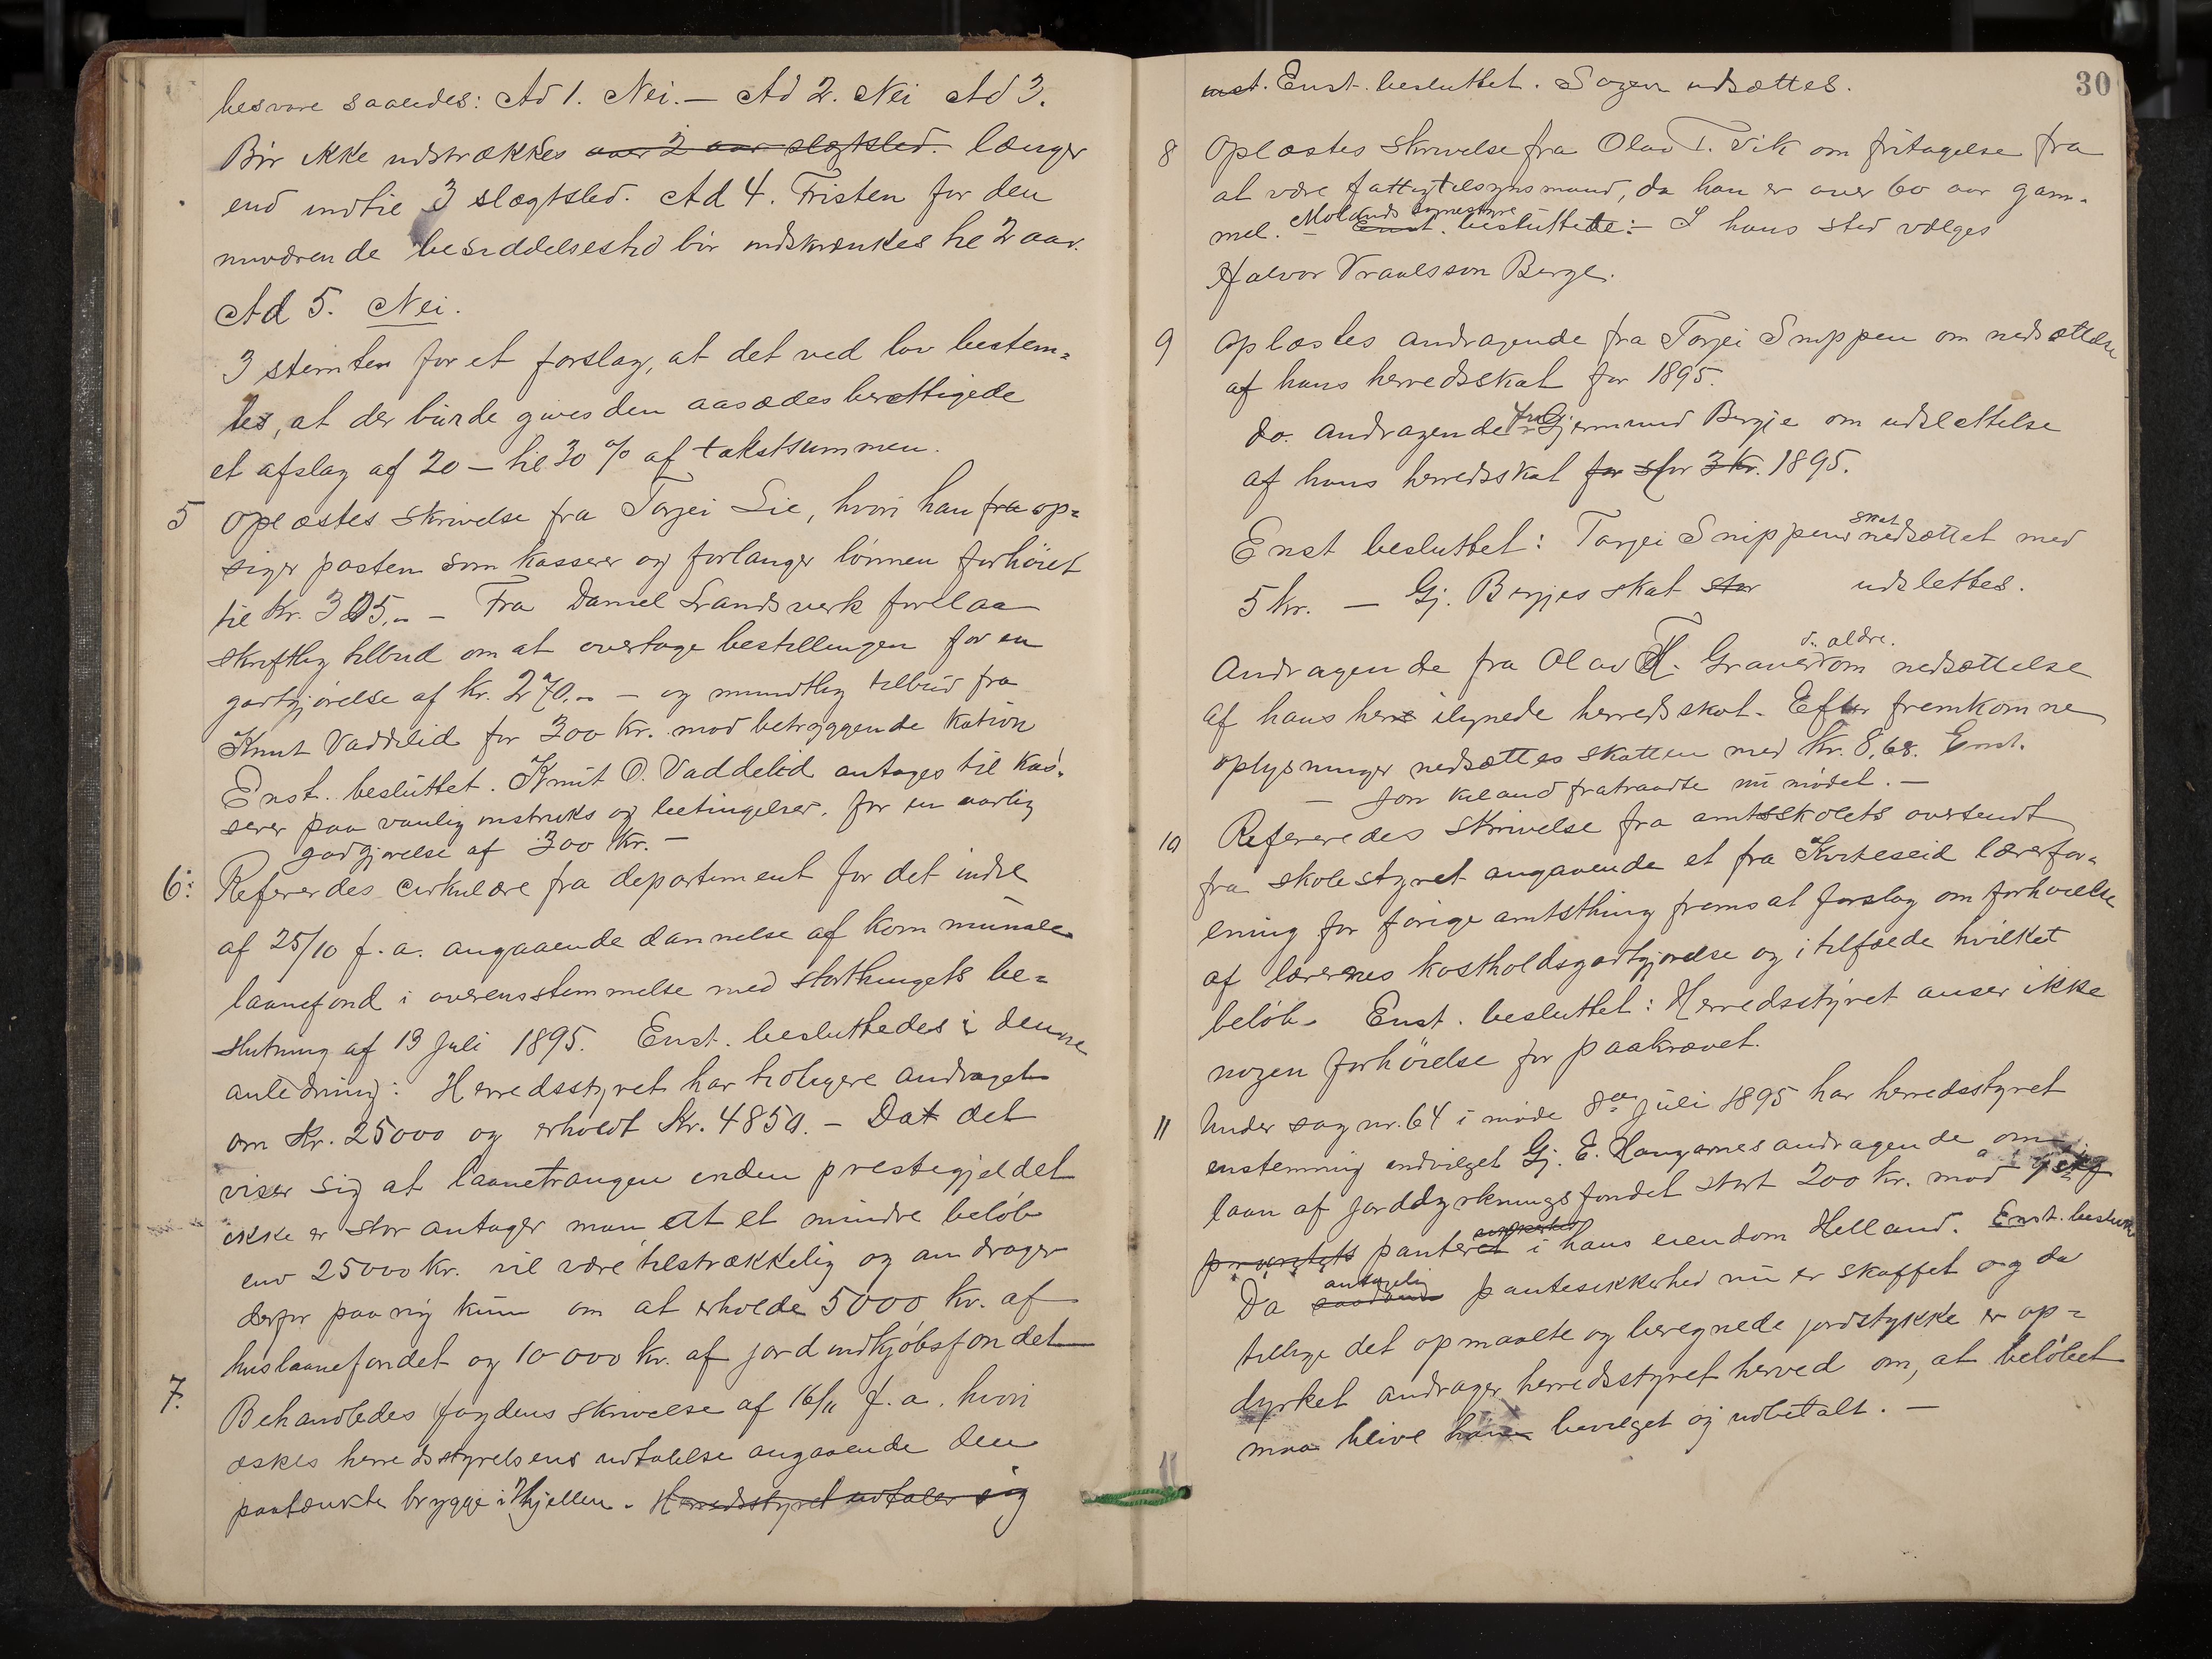 besvare saaledes: Ad 1. Nei. — Ad 2. Nei Ad 3.
Bör ikke udstrækkes over 2 aar slægtsled. længer
end indtil 3 slægtsled. Ad 4. Fristen for den
nuværende besiddelsestid bör indskrænkes til 2 aar.
Ad 5. Nei.
3 stemten for et forslag, at det ved lov bestem=
tes, at der burde gives den aasædesberettigede
et afslag af 20 — til 30 % af takstsummen.
5 Oplæstes skrivelse fra Torjei Lie, hvori han fra op=
siger posten som kasserer og forlanger lönnen forhöiet
til Kr. 305,00 — Fra Daniel Landsverk forelaa
skriftlig tilbud om at overtage bestillingen for en
godtgjörelse af Kr. 270,00 — og mundtlig tilbud fra
Knut Vaddelid for 300 Kr. mod betryggende kation
Enst. besluttet. Knut O. Vaddelid antages til kas=
serer paa vanlig instruks og betingelser, for en aarlig
godtgjörelse af 300 Kr. —
6: Refereredes cirkulære fra departement for det indre
af 25/10 f. a. angaaende dannelse af kommunale
laanefond i overensstemmelse med storthingets be=
slutning af 13 Juli 1895. Enst. besluttedes i denne
anledning: Herredsstyret har tidligere andraget
om Kr. 25000 og erholdt Kr. 4850. — Dat det
viser sig at laanetrangen inden prestegjeldet
ikke er stor antager man at et mindre belöb
end 25000 Kr. vil være tilstrækkelig og andrager
derfor paa ny kun om at erholde 5000 Kr. af
huslaanefondet og 10000 Kr. af jordindkjöbsfondet
7. Behandledes fogdens skrivelse af 16/11 f. a. hvori
æskes herredsstyrelsens udtalelse angaaende den
paatænkte brygge i Kjellen. Herredsstyret udtaler sig
30
enst. Enst. besluttet. Sagen udsættes.
8 Oplæstes skrivelse fra Olav T. Vik om fritagelse fra
at være fattigtilsynsmand, da han er over 60 aar gam=
Molands
mel. — Enst. besluttede: — I hans sted vælges
Halvor Vraalsson Berge.
9 Oplæstes andragende fra Torjei Snippen om nedsættelse
af hans herredsskat for 1895.
fra
do. andragende Gjermund Bergje om udslettelse
af hans herredsskat for for 3 Kr. 1895.
skat
Enst besluttet: Torjei Snippens nedsættet med
5 Kr. — Gj. Bergjes skat udslettes.
d. ældre.
Andragende fra Olav H. Graver om nedsættelse
af hans ilignede herredsskat. Efter fremkomne
oplysninger nedsættes skatten med Kr. 8,68. Enst.
— Jon Kiland fratraadte nu mödet. —
10 Refereredes skrivelse fra amtsskolets oversendt
fra skolestyret angaaende et fra Kviteseid lærerfor=
ening for forige amtsthing fremsat forslag om forhöielse
af lærernes kostholdsgodtgjörelse og i tilfælde hvilket
belöb. Enst. besluttet: Herredsstyret anser ikke
nogen forhöielse for paakrævet.
11 Under sag nr. 64 i möde 8de Juli 1895 har herredsstyret
enstemmig indvilget Gj. E. Haugarnes andragende om
laan af jorddyrkningsfondet stort 200 Kr. mod
panteret i hans eiendom Helland. Enst. besluttet
antagelig
Da saadan pantesikkerhed nu er skaffet og da
tillige det opmaalte og beregnede jordstykke er op=
dyrket andrager herredsstyret herved om, at belöbet
maa blive ham bevilget og udbetalt. —
11